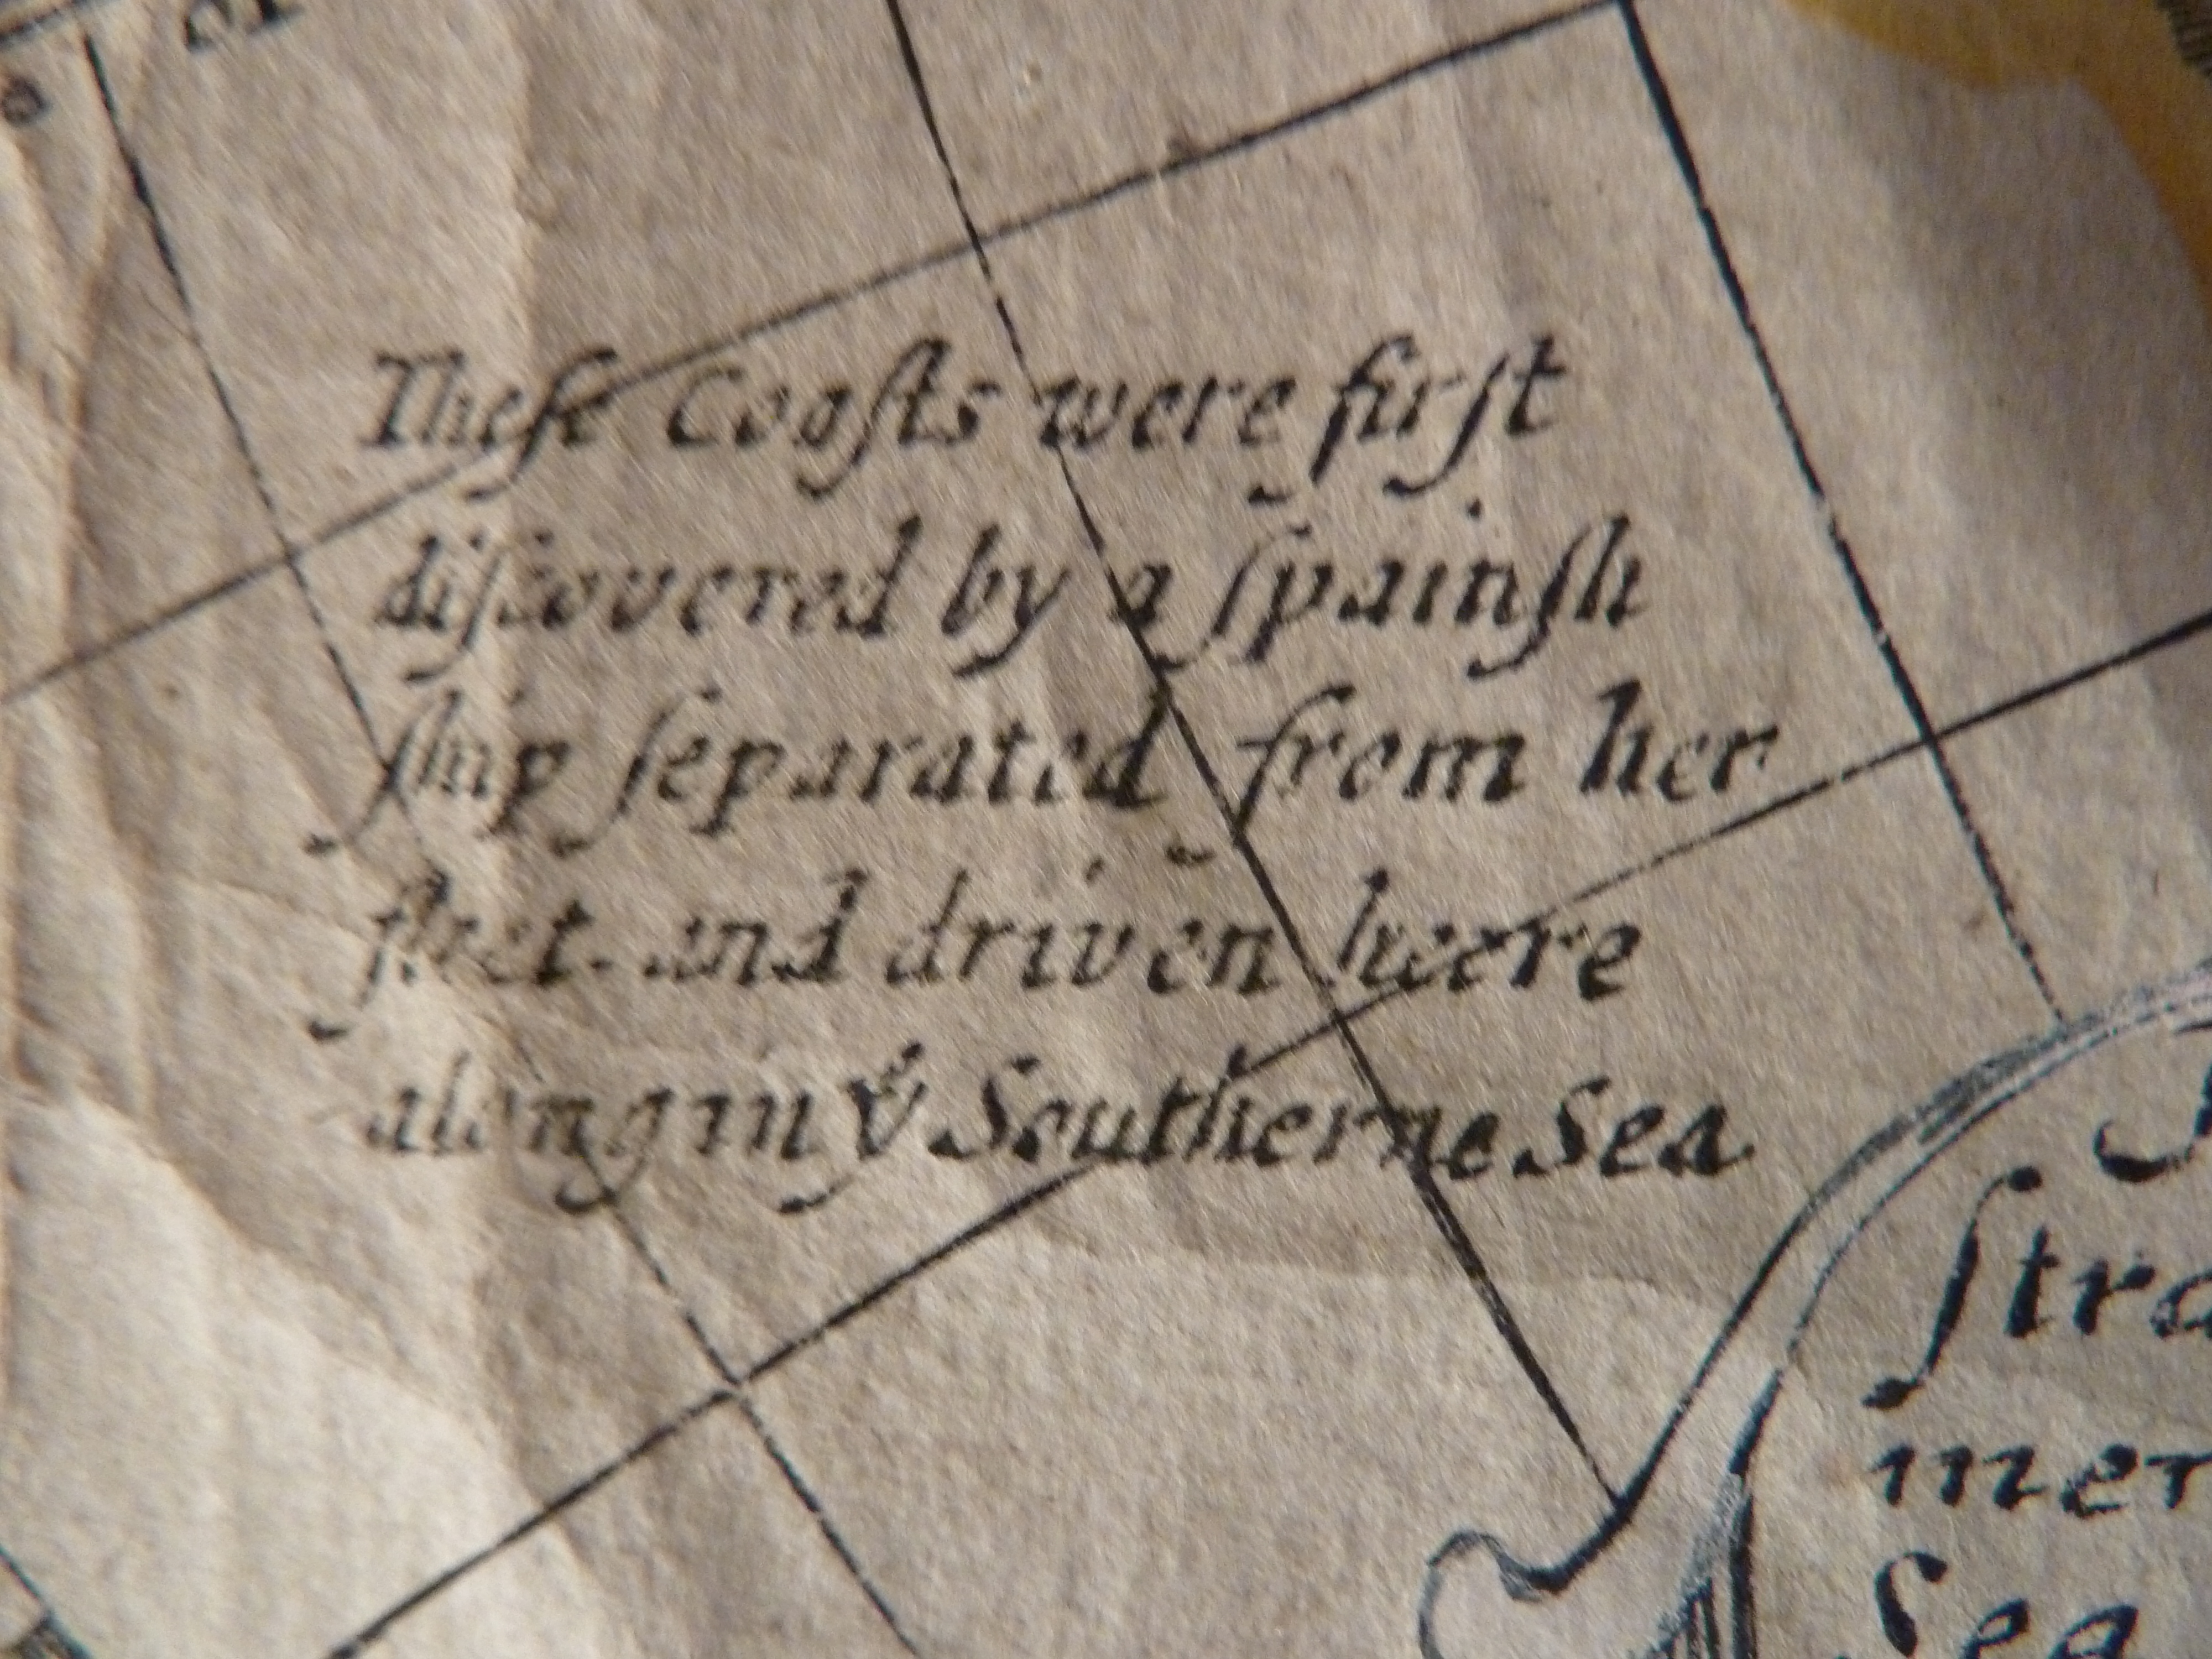 Theſe Coaſts were firſt
diſcovered by a ſpainſh
ſhip ſeparated from her
fleet and driven heere
along in yͤ Southerne Sea
ſtra
mer
Sea